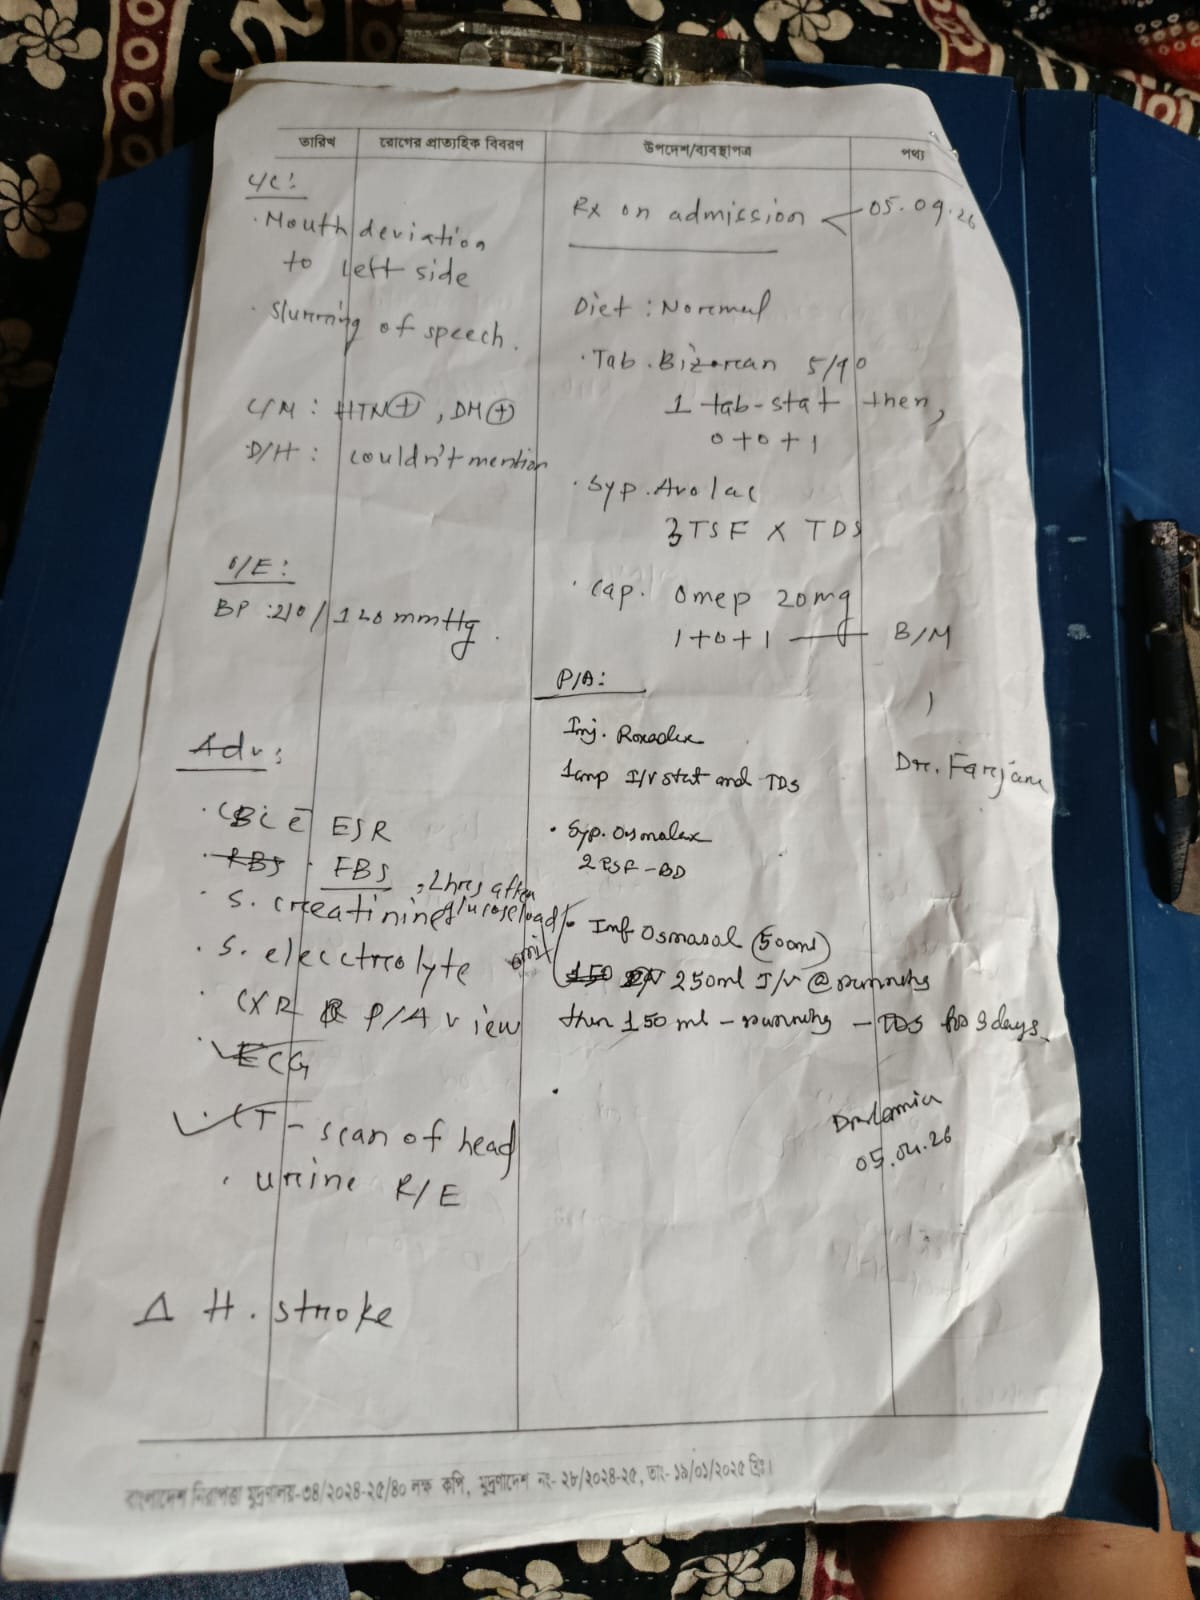 তারিখ রোগের প্রাত্যহিক বিবরণ উপদেশ/ব্যবস্থাপত্র পথ্য
C/C:
· Mouth deviation
to left side
· Slurring of speech.
C/M: HTN(+), DM(+)
D/H: couldn't mention
O/E:
BP: 210/120 mmHg.
Adv:
· CBC c̄ ESR
· RBS · FBS, 2hrs after
glucose load
· S. creatinine
· S. electrolyte
· CXR P/A view
· ECG
· CT-scan of head
· urine R/E
Δ H. stroke
Rx on admission < 05.04.26
Diet: Normal
· Tab. Bizoran 5/40
1 tab-stat then,
0+0+1
· Syp. Avolac
3 TSF X TDS
· Cap. Omep 20mg
1+0+1 — B/M
Dr. Farjana
P/A:
Inj. Roxadex
1amp I/V stat and TDS
· Syp. Osmolax
2 TSF - BD
omit
· Inf Osmosol (500ml)
150 250ml I/V @ running
then 150 ml - running - TDS for 3 days.
Dr. Lamia
05.04.26
বাংলাদেশ নিরাপত্তা মুদ্রণালয়-৩৪/২০২৪-২৫/৪০ লক্ষ কপি, মুদ্রণাদেশ নং- ২৮/২০২৪-২৫, তাং- ১৯/০১/২০২৫ খ্রিঃ।